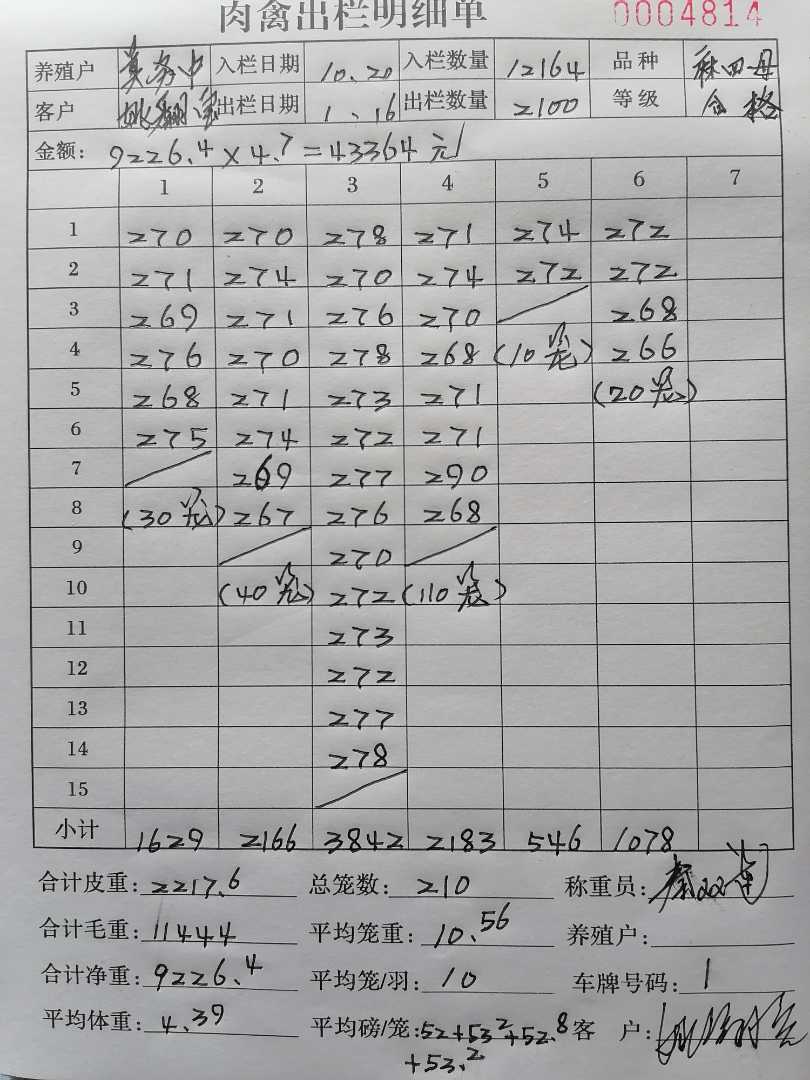 肉禽出栏明细单 0004814
养殖户 入栏日期 10.20 入栏数量 12164 品种
客户 出栏日期 1.16 出栏数量 2100 等级 合格
金额: 9226.4×4.7=43364元
1 2 3 4 5 6 7
1 270 270 278 271 274 272
2 271 274 270 274 272 272
3 269 271 276 270 268
4 276 270 278 268 (10笼) 266
5 268 271 273 271 (20笼)
6 275 274 272 271
7 269 277 290
8 (30笼) 267 276 268
9 270
10 (40笼) 272 (110笼)
11 273
12 272
13 277
14 278
15
小计 1629 2166 3842 2183 546 1078
合计皮重: 2217.6 总笼数: 210 称重员:
合计毛重: 11444 平均笼重: 10.56 养殖户:
合计净重: 9226.4 平均笼/羽: 10 车牌号码: 1
平均体重: 4.39 平均磅/笼: 52+53.2+52.8 客 户:
+53.2